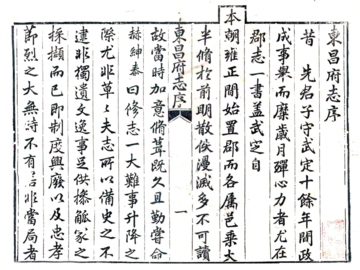 東昌府志序
昔　先君子守武定十餘年間政
成事舉而靡歲月殫心力者尤在
郡志一書蓋武定自
本朝雍正間始置郡而各屬邑乗大
半脩於前明散佚漫滅多不可讀
故當時加意脩葺既久且勤嘗命
赫紳泰曰修志一大難事升降之
際尤非草々夫志所以備史之不
逮非獨遺文逸事足供操觚家之
採擷而已即制度興廢以及忠孝
節烈之大無詩不有 非當局者
東昌府志序
一